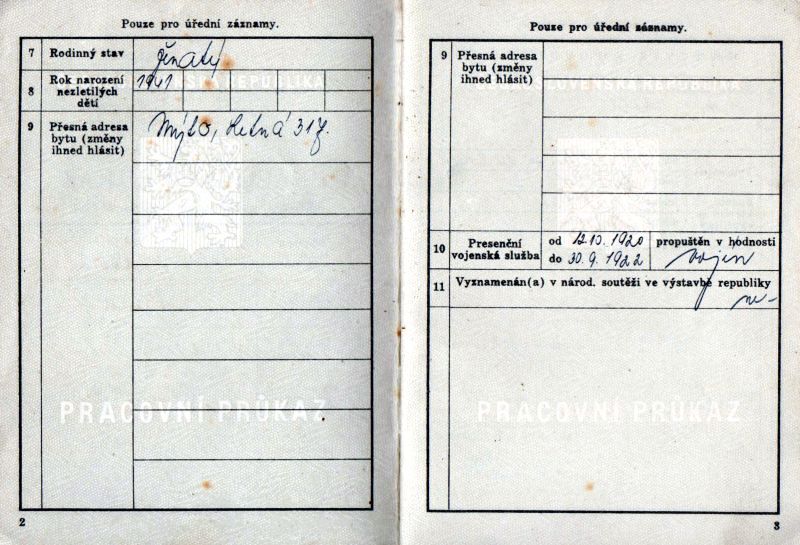 Pouze pro úřední záznamy.
7 Rodinný stav ženatý
8 Rok narození nezletilých dětí 1941
ČESKOSLOVENSKÁ REPUBLIKA
9 Přesná adresa Mýto, Letná 317.
bytu (změny
ihned hlásit)
PRACOVNÍ PRŮKAZ
2
Pouze pro úřední záznamy.
9 Přesná adresa
bytu (změny
ihned hlásit)
ČESKOSLOVENSKÁ REPUBLIKA
10 Presenční vojenská služba od 12.10.1920 propuštěn v hodnosti
do 30.9.1922 vojín
11 Vyznamenán(a) v národ. soutěži ve výstavbě republiky
ne-
PRACOVNÍ PRŮKAZ
3